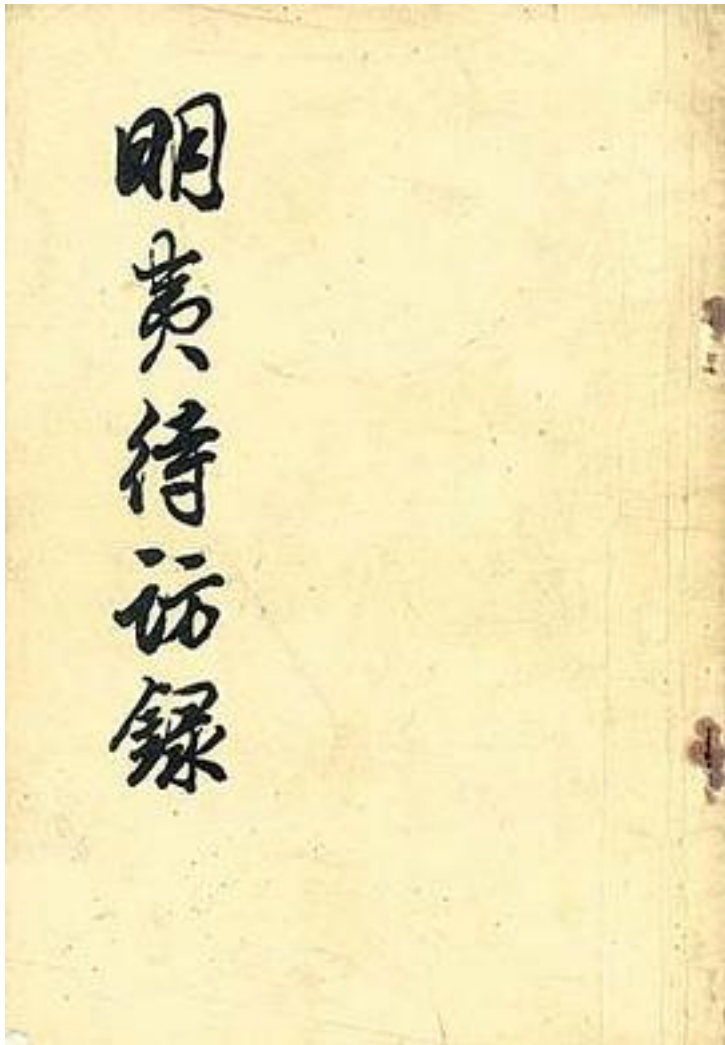 明夷待访錄